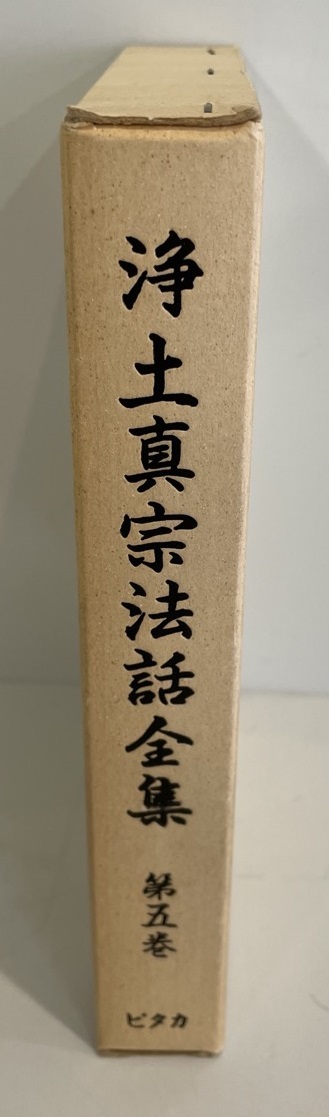 浄土真宗法話全集
第五巻
ピタカ